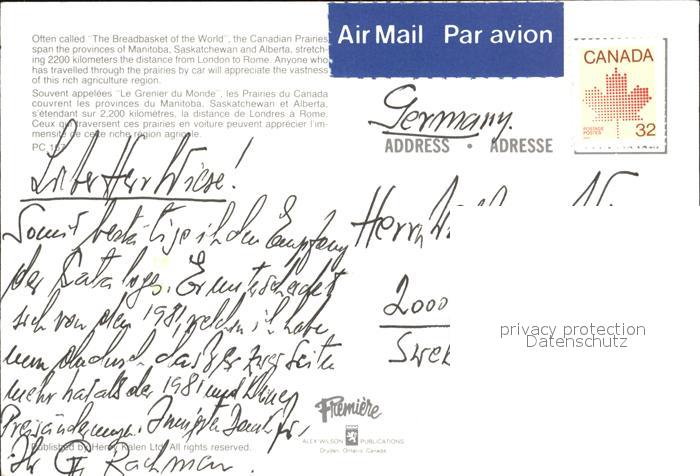 Often called "The Breadbasket of the World", the Canadian Prairies
span the provinces of Manitoba, Saskatchewan and Alberta, stretch-
ing 2200 kilometers the distance from London to Rome. Anyone who
has travelled through the prairies by car will appreciate the vastness
of this rich agriculture region.
Souvent appelées "Le Grenier du Monde", les Prairies du Canada
couvrent les provinces du Manitoba, Saskatchewan et Alberta,
s'étendant sur 2,200 kilomètres, la distance de Londres à Rome.
Ceux qui traversent ces prairies en voiture peuvent apprécier l'im-
mensité de cette riche région agricole.
PC
Air Mail Par avion
CANADA
POSTAGE
POSTES
32
Germany.
ADDRESS • ADRESSE
Lieber Herr Wiese!
Somit bestätige ich den Empfang
des Cataloges. Er unterscheidet
sich von dem 1981, welchen ich habe,
nun dadurch das er zwei Seiten
mehr hat als der 1981 und
Preisänderungen. Innigsten Dank für
Ihr Rachman.
Herrn
2000
privacy protection
Datenschutz
Première
ALEX WILSON PUBLICATIONS
Dryden, Ontario, Canada
Published by Henry Kalen Ltd. All rights reserved.